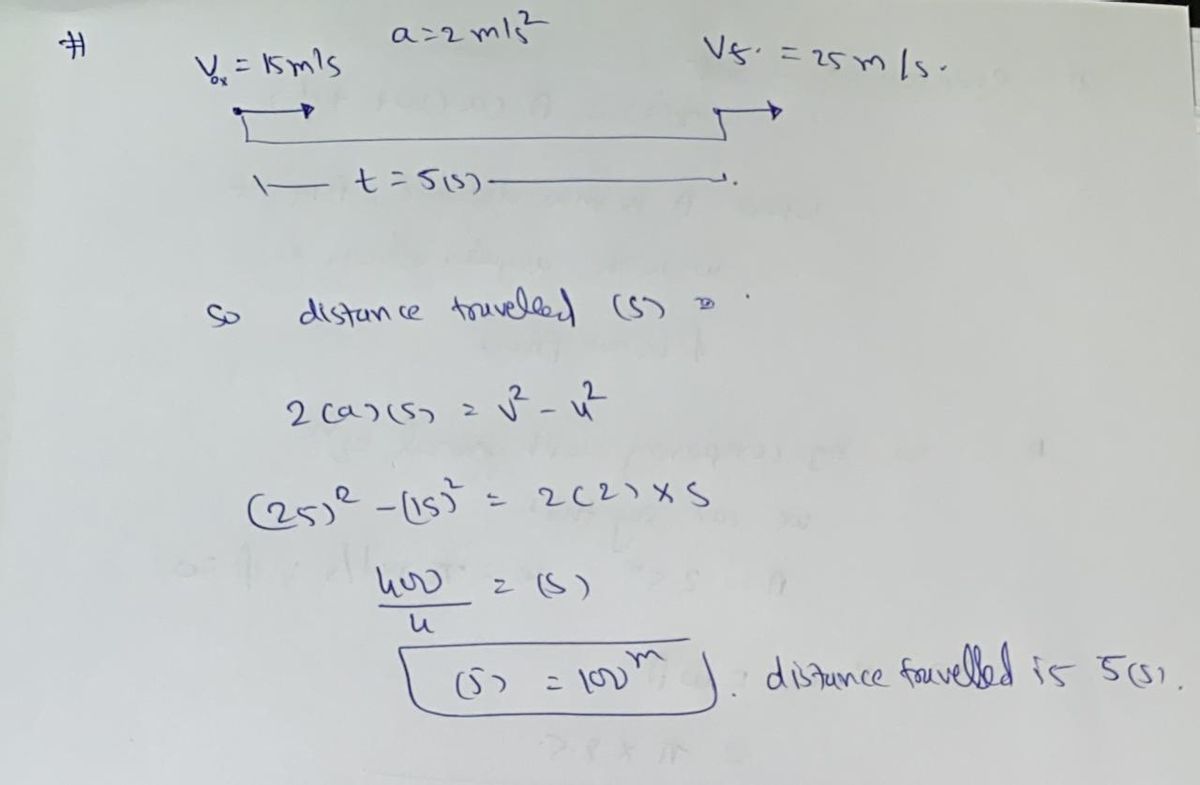 # V₀ₓ = 15m/s a=2 m/s² Vf. = 25 m/s.
t = 5(s)
so distance travelled (s) =
2(a)(s) = v² - u²
(25)² - (15)² = 2(2) × s
400/4 = (s)
(s) = 100 m. distance travelled is 5(s).